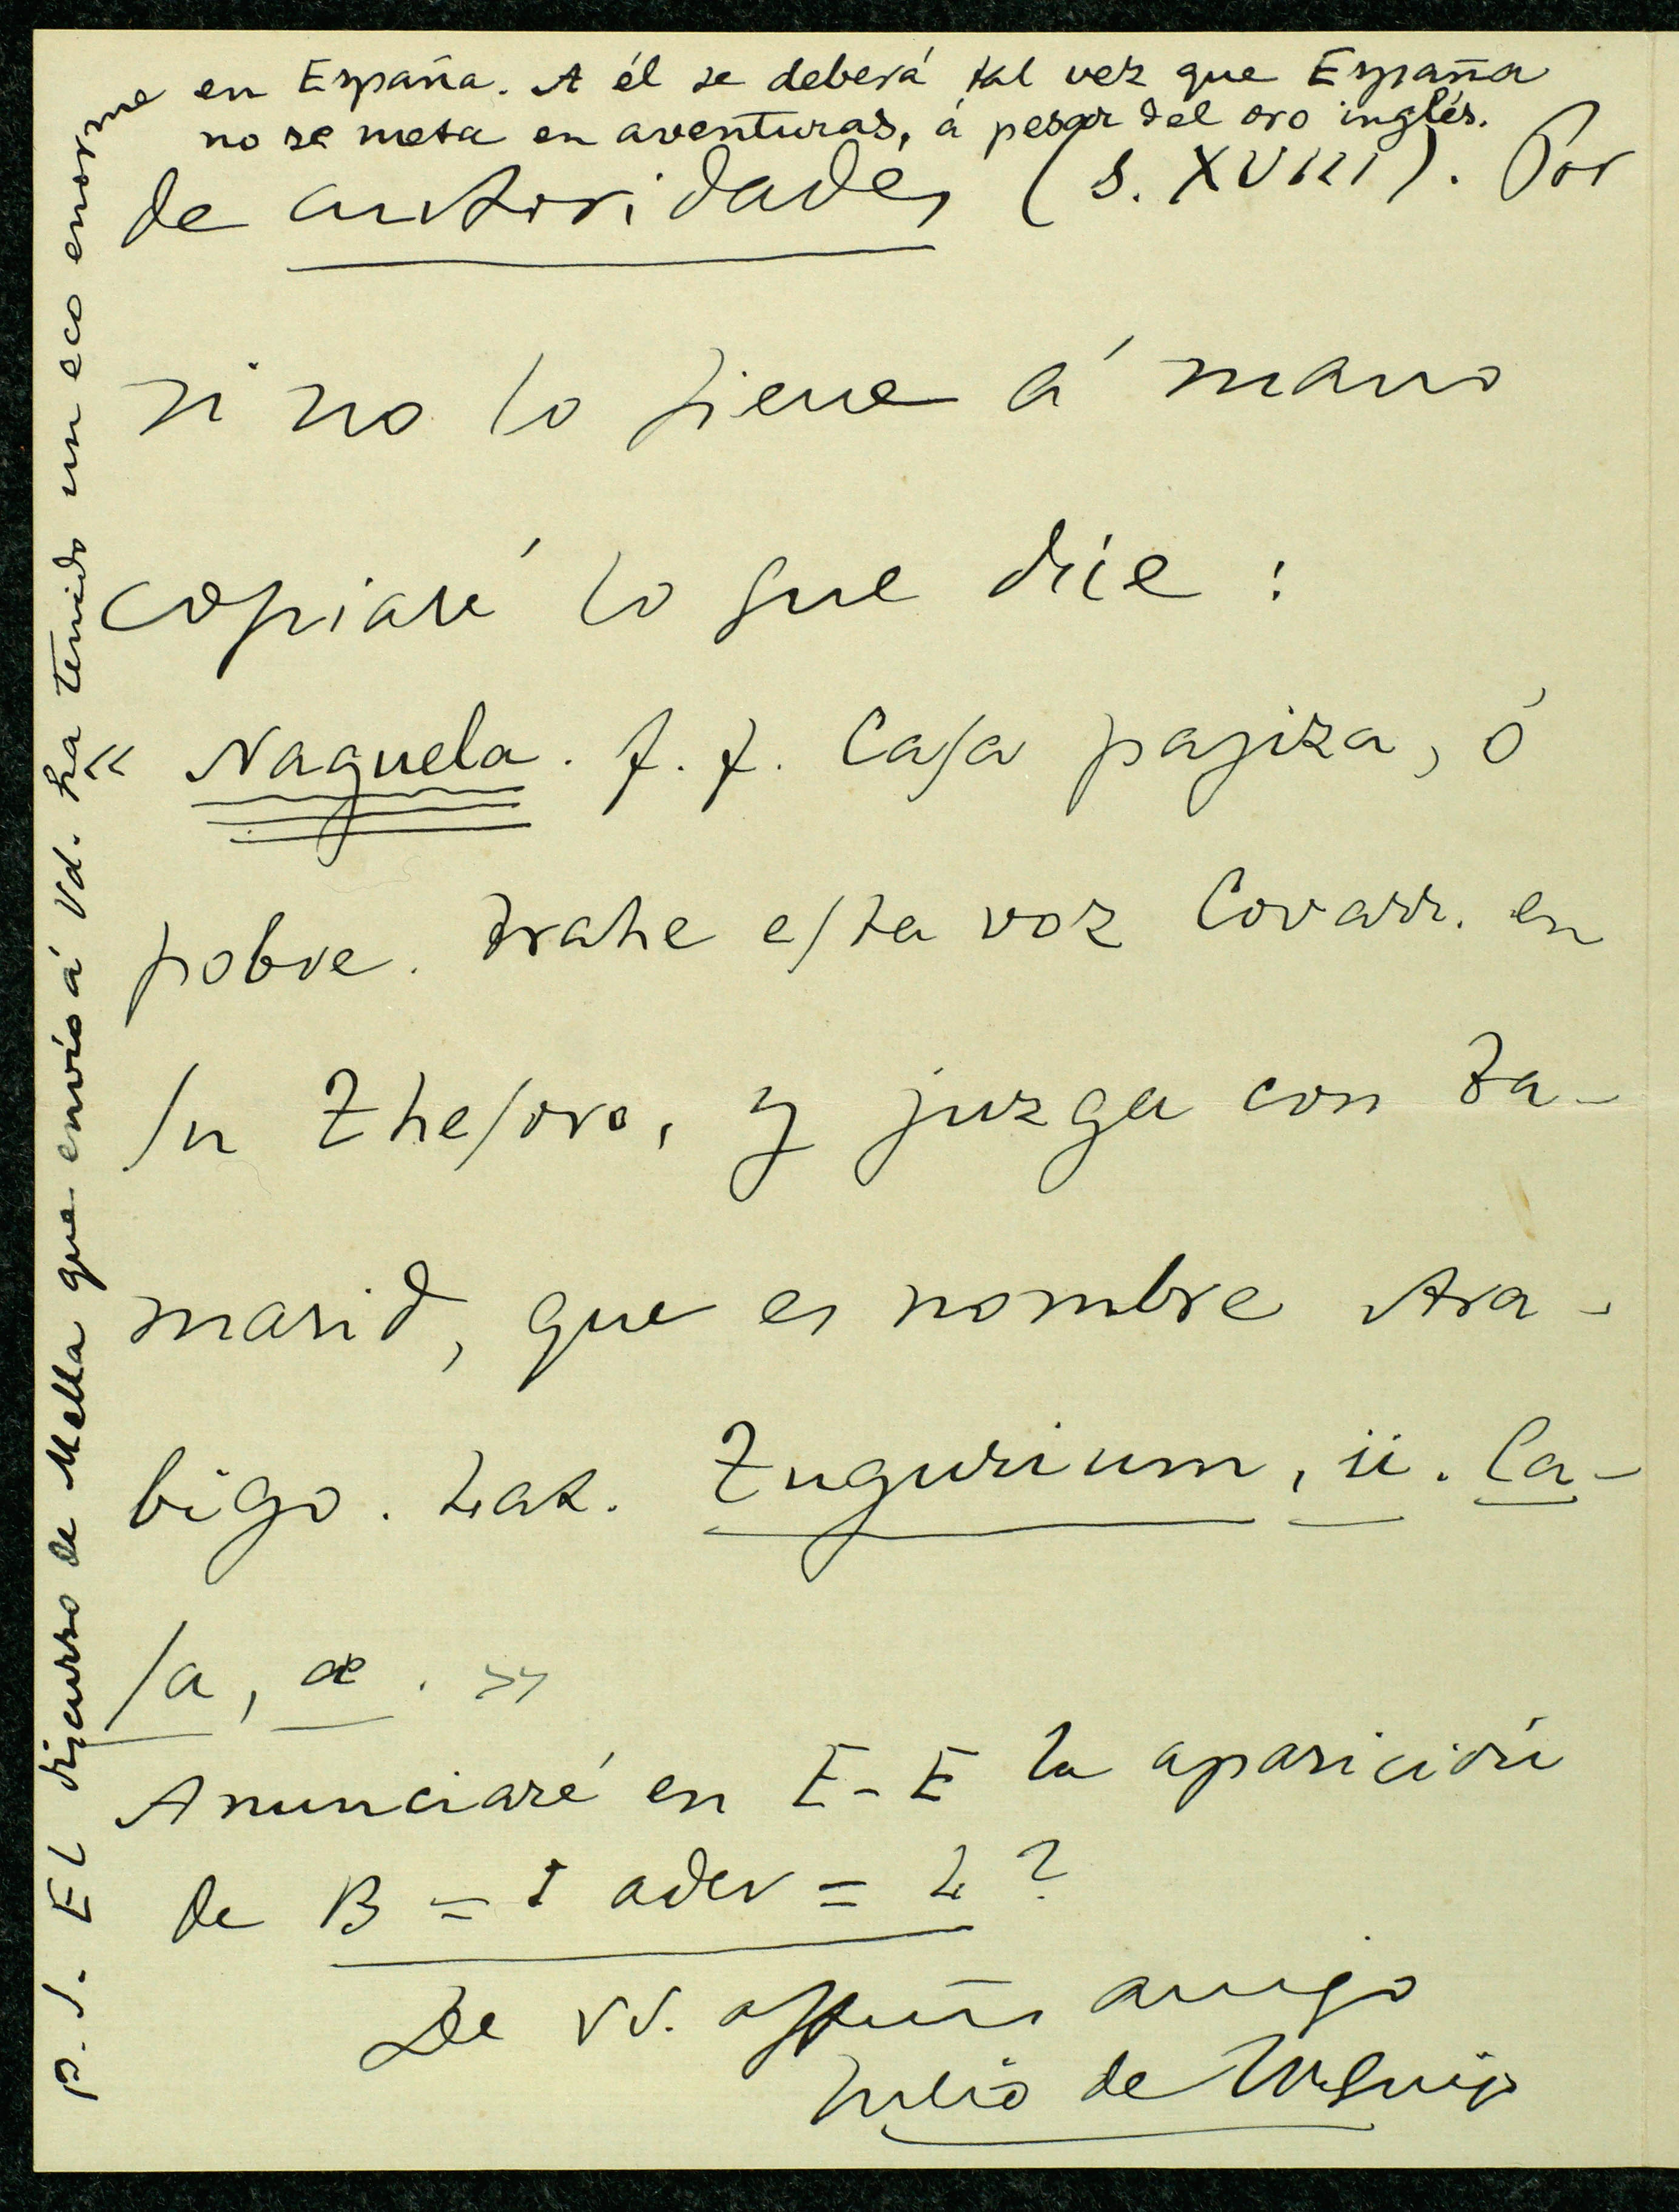 de autoridades (S. XVIII). Por
si no lo tiene á mano
copiaré lo que dice :
« Naguela. s. f. Caſa pajiza, ó
pobre. Trahe eſta voz Covarr. en
ſu Theſoro, y juzga con Ta-
marid, que es nombre Ara-
bigo. Lat. Tugurium, ii. Ca-
ſa, æ. »
Anunciaré en E-E la aparición
de B = + ader = L ?
De Vd. affmo amigo
Julio de Urquijo
P. S. El discurso de Mella que envío á Vd. ha tenido un eco enorme
en España. A él se deberá tal vez que España
no se meta en aventuras, á pesar del oro inglés.